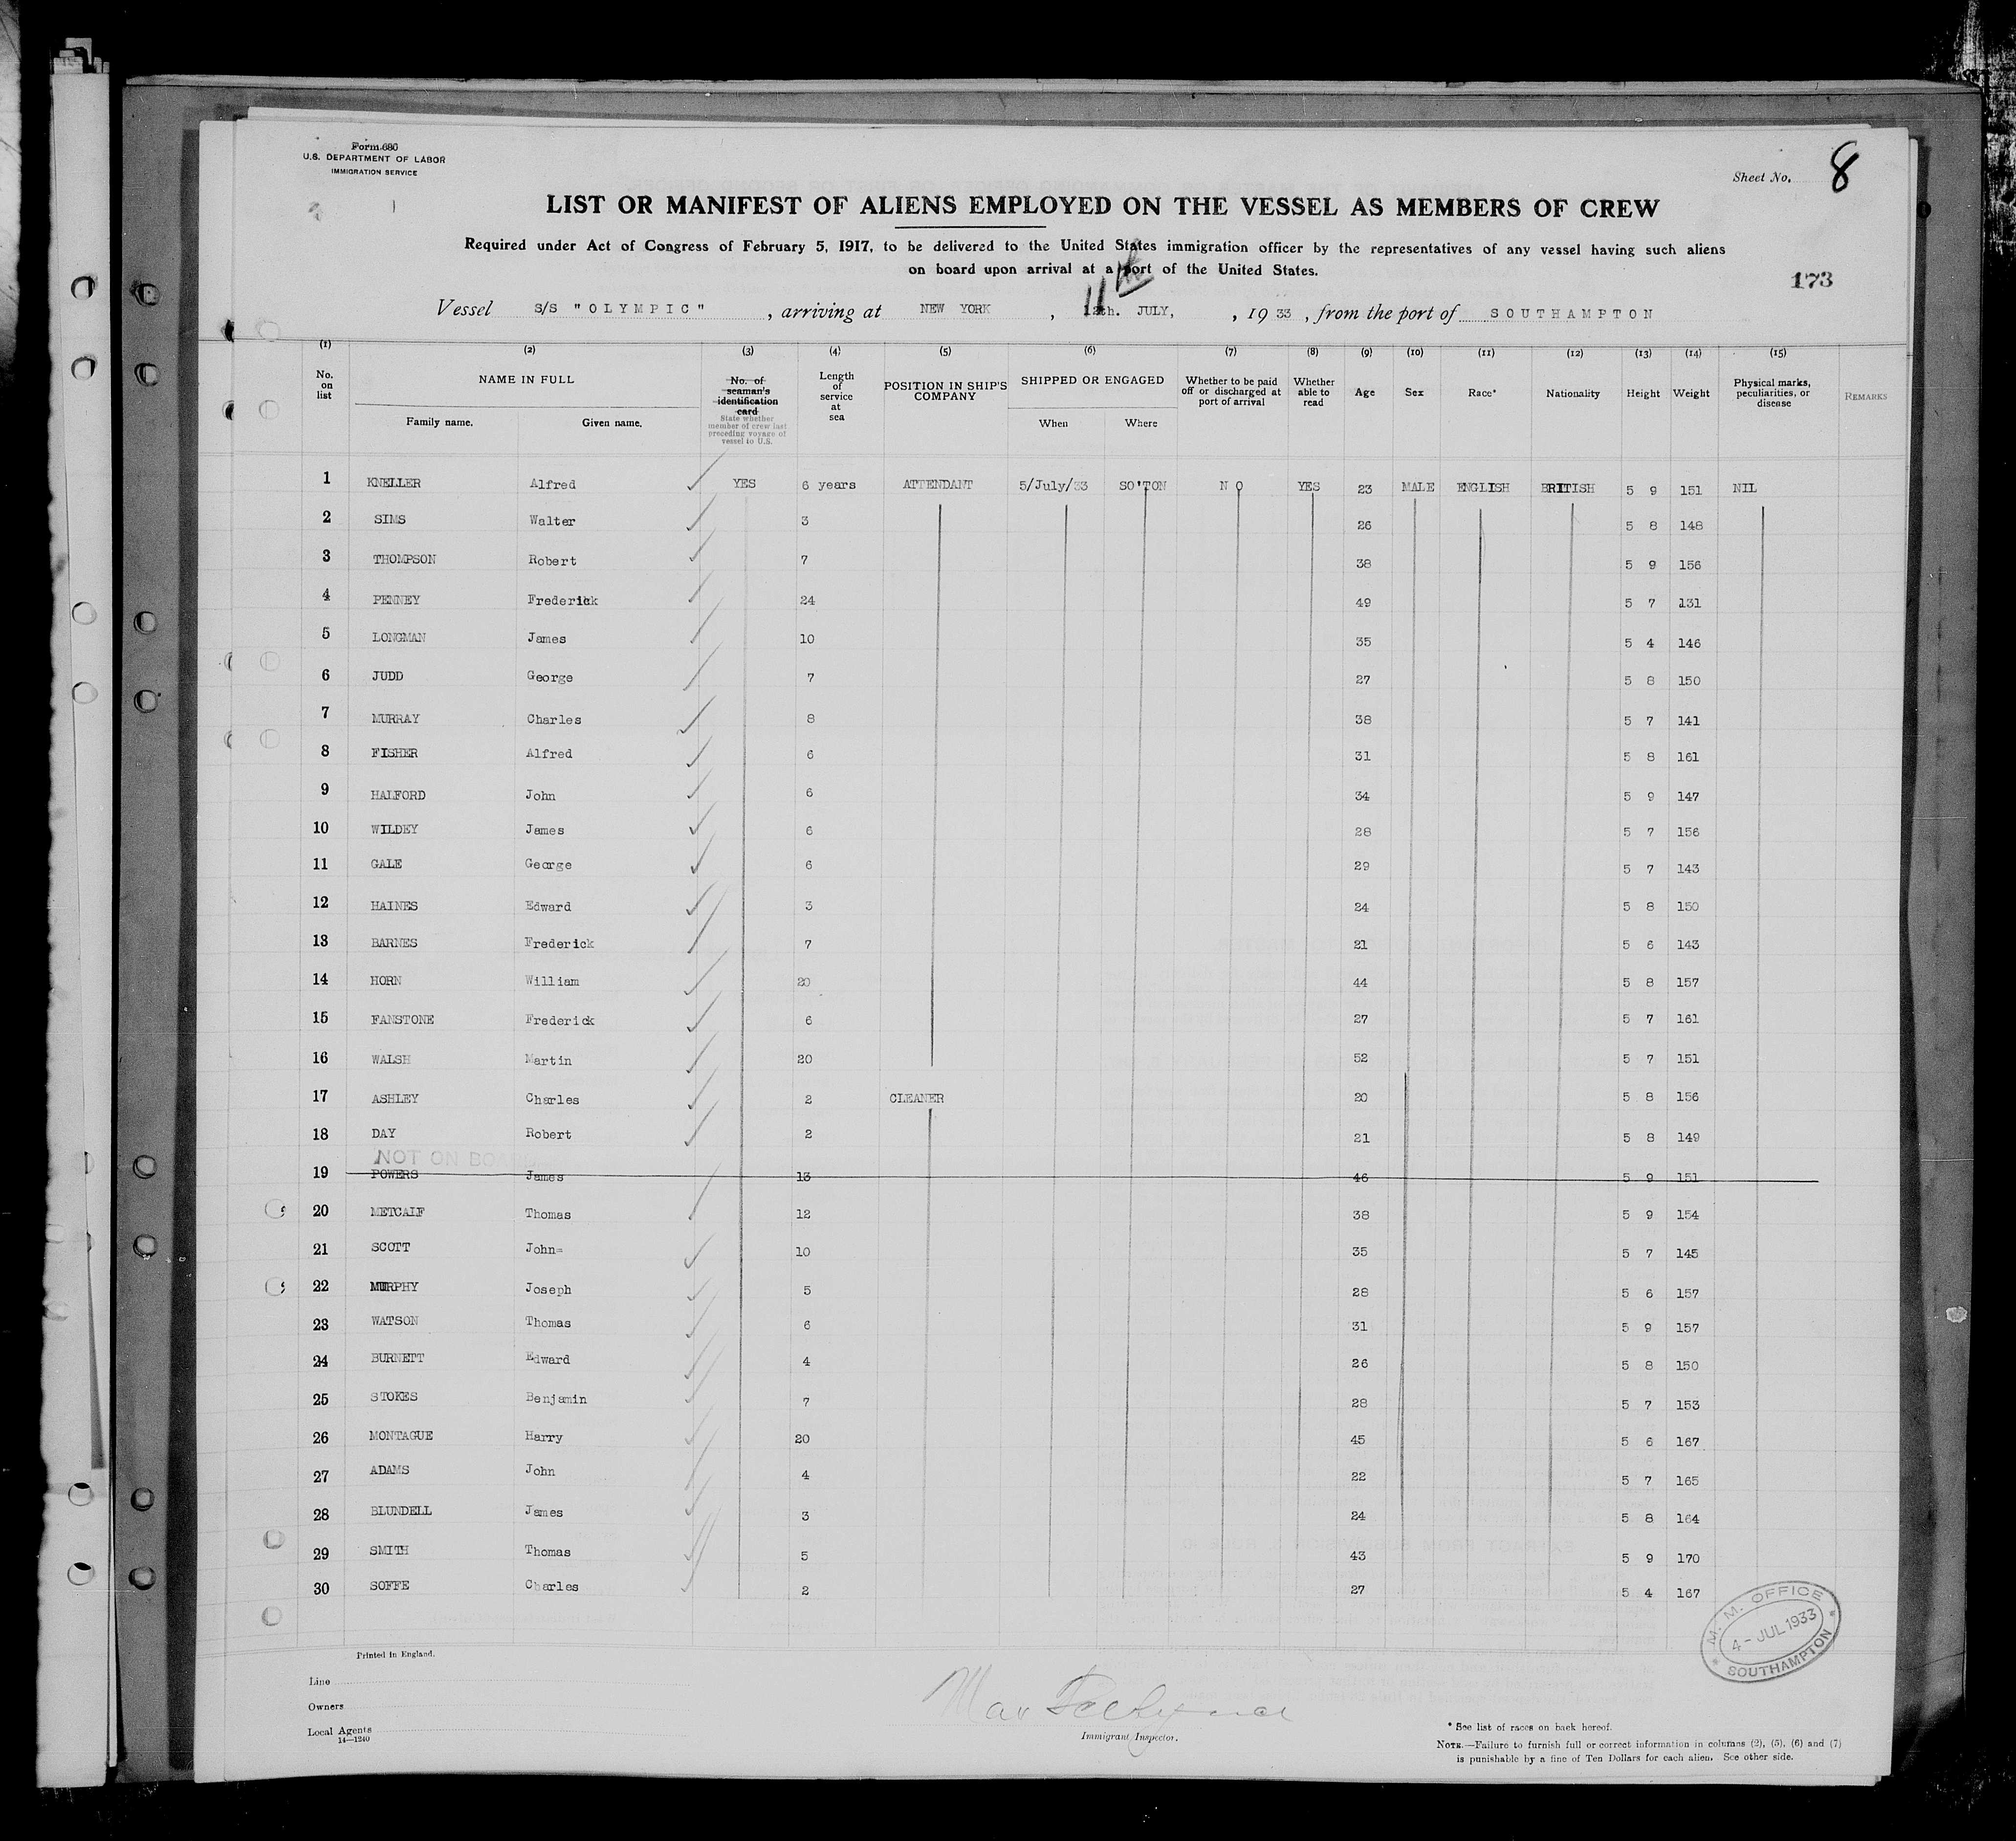 Form 686
U.S. DEPARTMENT OF LABOR
IMMIGRATION SERVICE
Sheet No. 8
LIST OR MANIFEST OF ALIENS EMPLOYED ON THE VESSEL AS MEMBERS OF CREW
Required under Act of Congress of February 5, 1917, to be delivered to the United States immigration officer by the representatives of any vessel having such aliens
on board upon arrival at a port of the United States.
173
11th
Vessel S/S "OLYMPIC", arriving at NEW YORK, 12th. JULY, , 1933, from the port of SOUTHAMPTON
(1) (2) (3) (4) (5) (6) (7) (8) (9) (10) (11) (12) (13) (14) (15)
No. on list NAME IN FULL Family name. Given name. No. of seaman's identification card State whether member of crew last preceding voyage of vessel to U.S. Length of service at sea POSITION IN SHIP'S COMPANY SHIPPED OR ENGAGED When Where Whether to be paid off or discharged at port of arrival Whether able to read Age Sex Race* Nationality Height Weight Physical marks, peculiarities, or disease REMARKS
1 KNELLER Alfred YES 6 years ATTENDANT 5/July/33 SO'TON N O YES 23 MALE ENGLISH BRITISH 5 9 151 NIL
2 SIMS Walter 3 26 5 8 148
3 THOMPSON Robert 7 38 5 9 156
4 PENNEY Frederick 24 49 5 7 131
5 LONGMAN James 10 35 5 4 146
6 JUDD George 7 27 5 8 150
7 MURRAY Charles 8 38 5 7 141
8 FISHER Alfred 6 31 5 8 161
9 HALFORD John 6 34 5 9 147
10 WILDEY James 6 28 5 7 156
11 GALE George 6 29 5 7 143
12 HAINES Edward 3 24 5 8 150
13 BARNES Frederick 7 21 5 6 143
14 HORN William 20 44 5 8 157
15 FANSTONE Frederick 6 27 5 7 161
16 WALSH Martin 20 52 5 7 151
17 ASHLEY Charles 2 CLEANER 20 5 8 156
18 DAY Robert 2 21 5 8 149
NOT ON BOARD
19 POWERS James 13 46 5 9 151
20 METCALF Thomas 12 38 5 9 154
21 SCOTT John= 10 35 5 7 145
22 MURPHY Joseph 5 28 5 6 157
23 WATSON Thomas 6 31 5 9 157
24 BURNETT Edward 4 26 5 8 150
25 STOKES Benjamin 7 28 5 7 153
26 MONTAGUE Harry 20 45 5 6 167
27 ADAMS John 4 22 5 7 165
28 BLUNDELL James 3 24 5 8 164
29 SMITH Thomas 5 43 5 9 170
30 SOFFE Charles 2 27 5 4 167
M. M. OFFICE
4 - JUL 1933
SOUTHAMPTON
Printed in England.
Line
Owners
Local Agents
14—1240
Immigrant Inspector.
* See list of races on back hereof.
NOTE.—Failure to furnish full or correct information in columns (2), (5), (6) and (7)
is punishable by a fine of Ten Dollars for each alien. See other side.